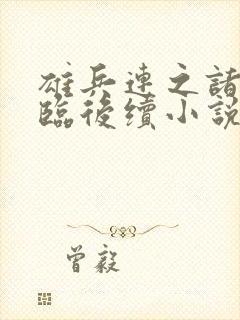 雄兵連之諸
臨後續小說
曾毅